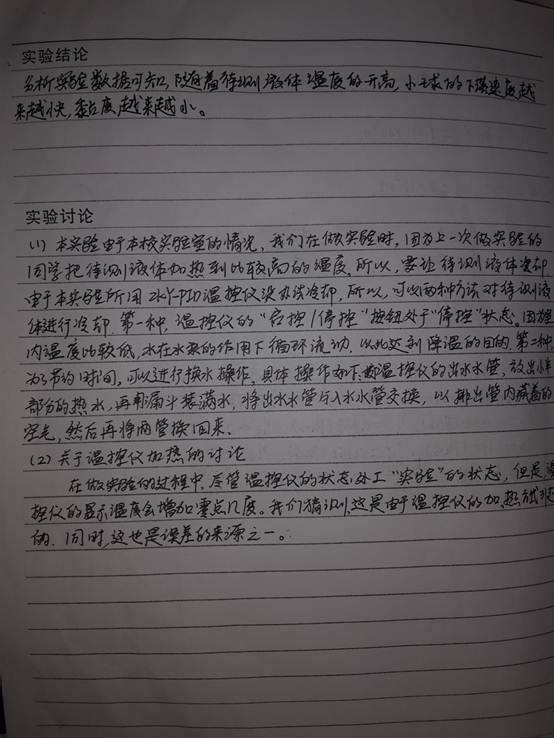 实验结论
分析实验数据可知,随着待测液体温度的升高,小球的下落速度越
来越快,黏度越来越小。
实验讨论
(1) 本实验由于本校实验室的情况,我们在做实验时,因为上一次做实验的
同学把待测液体加热到比较高的温度,所以,要让待测液体冷却
由于本实验所用ZKY-PID温控仪没办法冷却,所以,可以两种方法对待测液
体进行冷却。第一种,温控仪的“启控/停控”按钮处于“停控”状态。因
内温度比较低,水在水泵的作用下循环流动,以此达到降温的目的。第二种
为节约时间,可以进行换水操作。具体操作如下:温控仪的出水水管,放出
部分的热水,再用漏斗装满水,将出水水管与入水水管交换,以排出管内藏着的
空气,然后再将两管换回来。
(2) 关于温控仪加热的讨论
在做实验的过程中,尽管温控仪的状态处于“实验”的状态,但是
控仪的显示温度会增加零点几度。我们猜测,这是由于温控仪的加热
的。同时,这也是误差的来源之一。